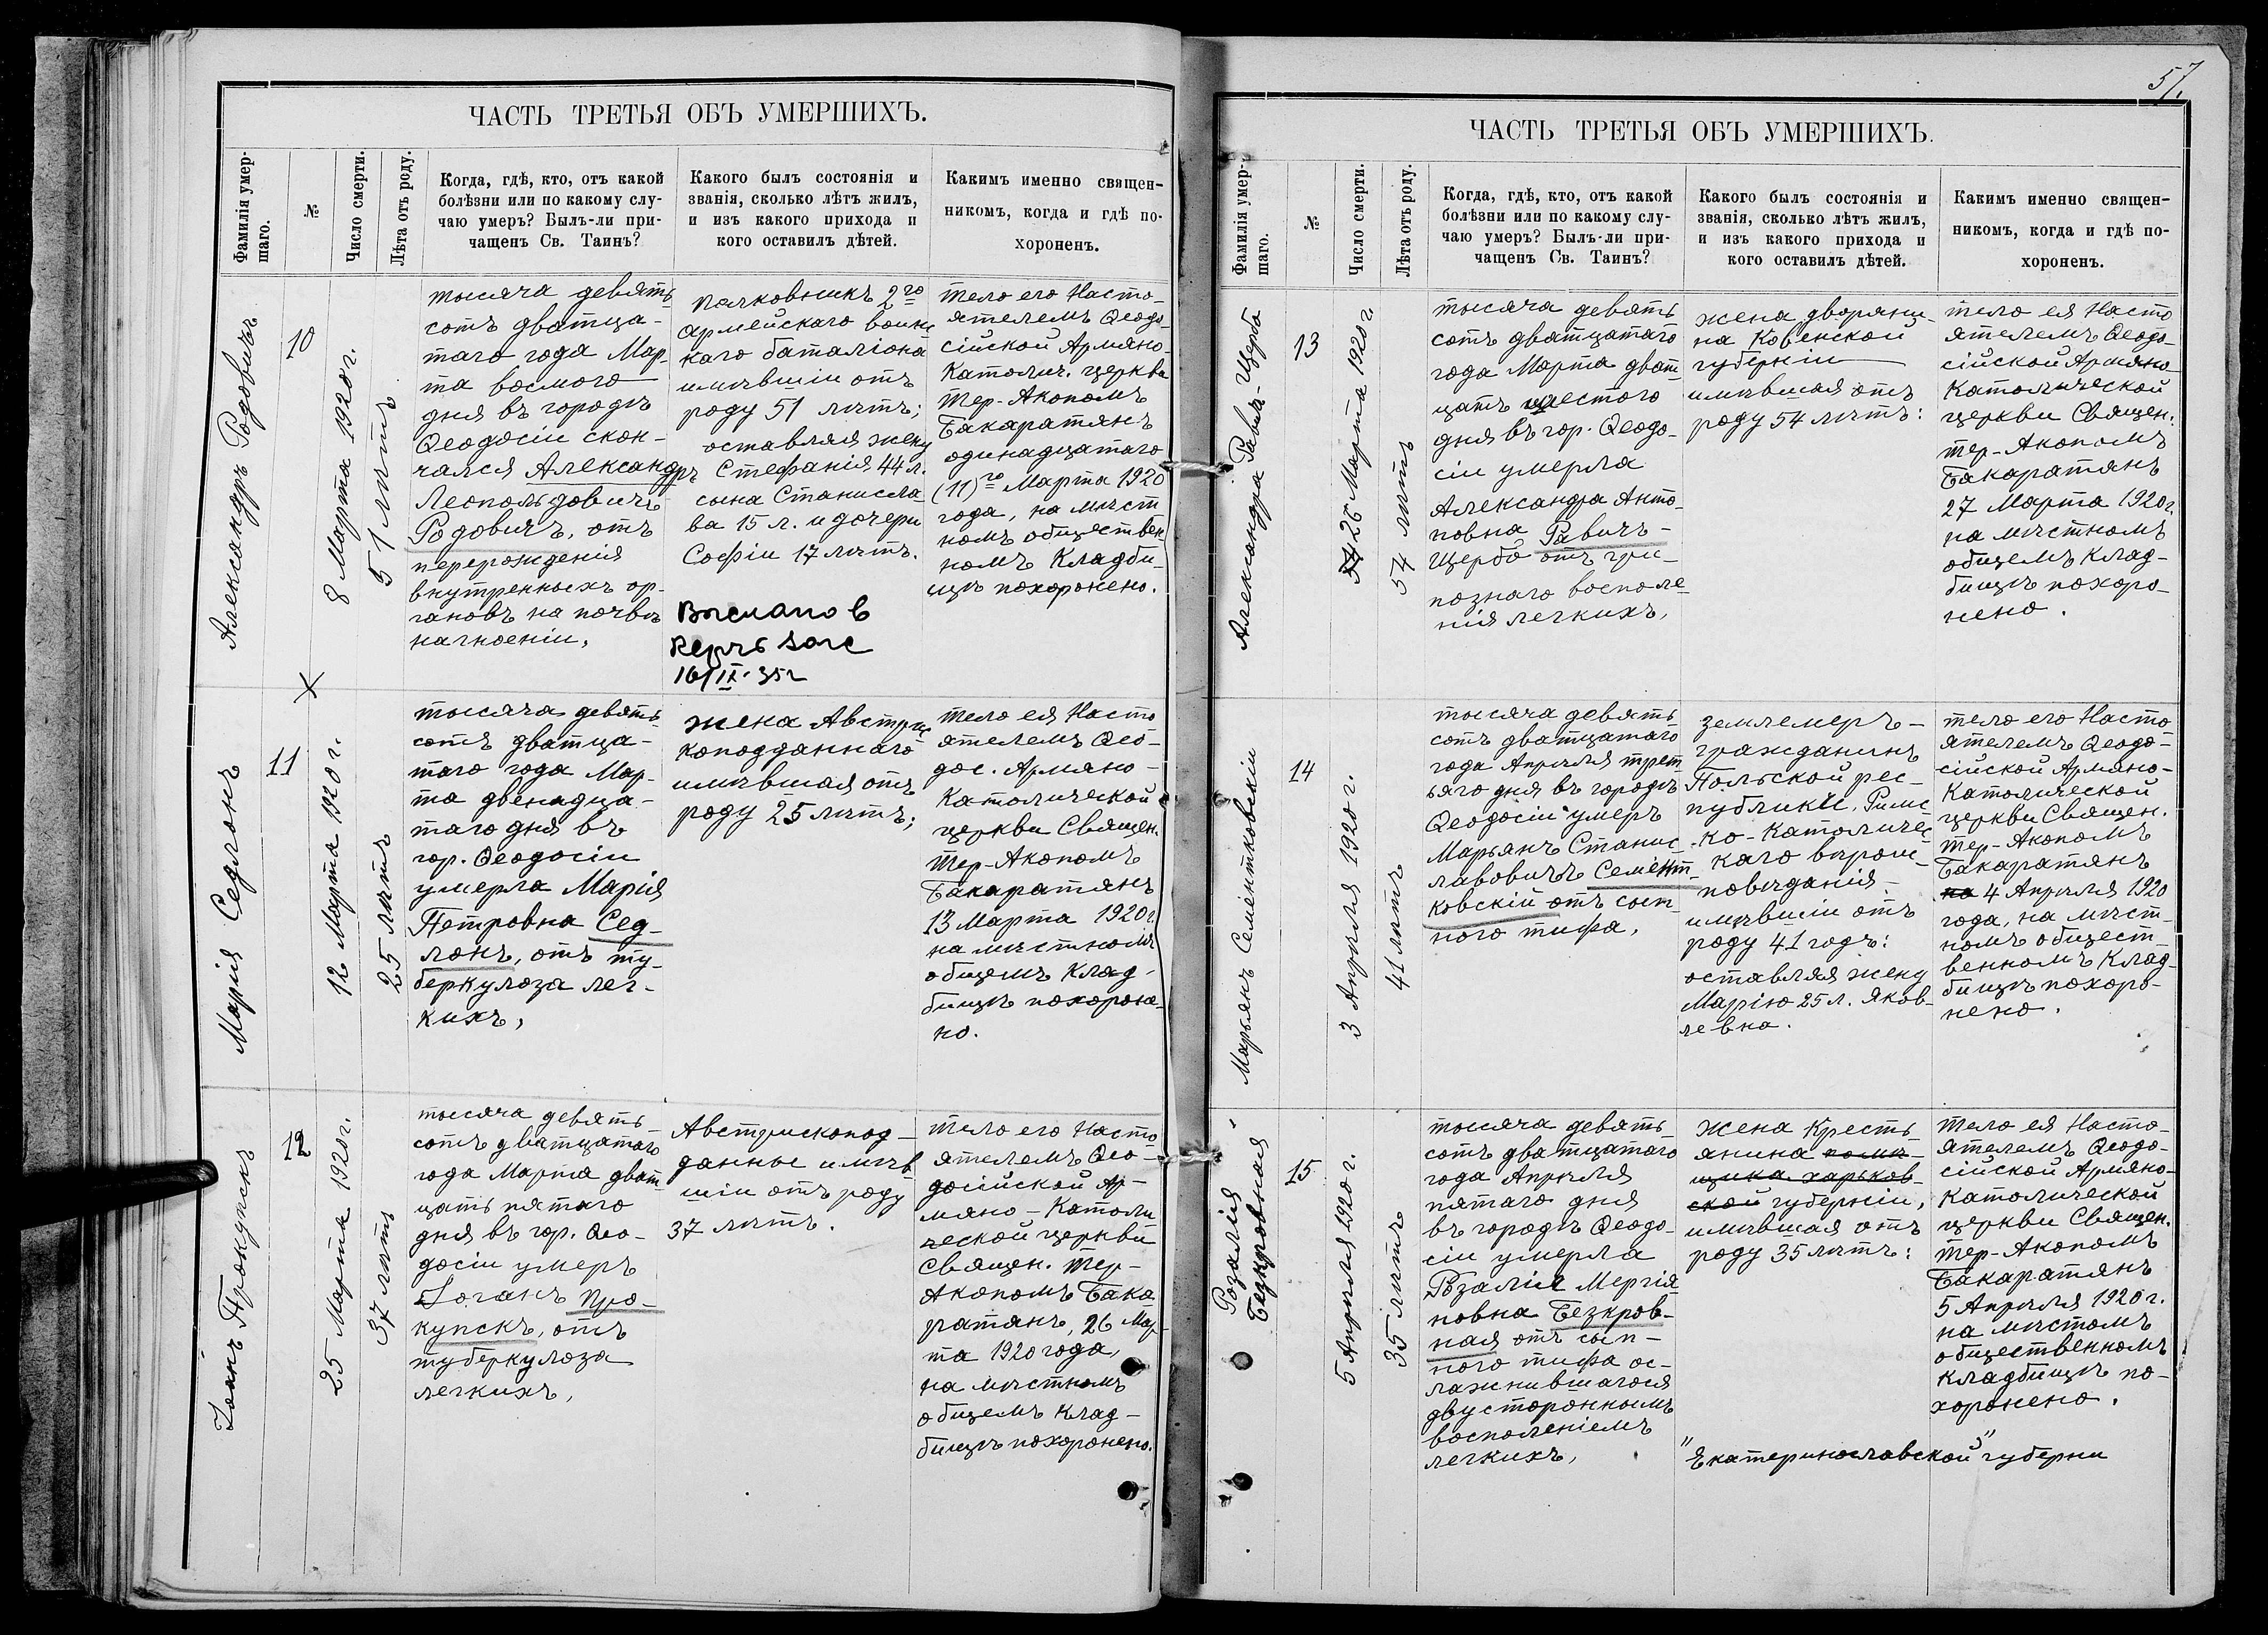 57.
ЧАСТЬ ТРЕТЬЯ ОБЪ УМЕРШИХЪ.
Фамилія умер-
шаго.
№
Число смерти.
Лѣта отъ роду.
Когда, гдѣ, кто, отъ какой
болѣзни или по какому слу-
чаю умеръ? Былъ-ли при-
чащенъ Св. Таинъ?
Какого былъ состоянія и
званія, сколько лѣтъ жилъ,
и изъ какого прихода и
кого оставилъ дѣтей.
Какимъ именно священ-
никомъ, когда и гдѣ по-
хороненъ.
Александръ Родовичъ
10
8 Марта 1920 г.
51 лѣтъ
тысяча девять
сотъ дватца-
таго года Мар-
та восмого
дня въ городѣ
Ѳеодосіи скон-
чался Александръ
Леопольдовичъ
Родовичъ, отъ
перерожденія
внутренныхъ ор-
гановъ на почвѣ
нагноеніи,
Полковникъ 2го
армейскаго воинс
каго баталіона
имѣвшіи отъ
роду 51 лѣтъ;
оставляя жену
Стефанія 44 л.
сына Станисла
ва 15 л. и дочери
Софіи 17 лѣтъ.
Выслано в
Керчь загс
16/IX-35г
тело его Насто-
ятелемъ Ѳеодо-
сійской Армяно-
Католич. церкви
Тер-Акопомъ
Бакаратянъ
одинадцатаго
(11)го Марта 1920
года, на мѣст
номъ обществен
номъ Кладби-
щѣ похоронено.
×
Марія Седлонъ
11
12 Марта 1920 г.
25 лѣтъ
тысяча девять
сотъ дватца-
таго года Мар-
та двенадца-
таго дня въ
гор. Ѳеодосіи
умерла Марія
Петровна Сед-
лонъ, отъ ту-
беркулоза лег-
кихъ,
жена Австрис
коподданнаго
имѣвшая отъ
роду 25 лѣтъ;
тело ея Насто
ятелемъ Ѳео-
дос. Армяно-
Католической
церкви Священ.
Тер-Акопомъ
Бакаратянъ
13 Марта 1920 г.
на мѣстномъ
общемъ Клад-
бищѣ похороне-
но.
Іоанъ Прокупскъ
12
25 Марта 1920 г.
37 лѣтъ
тысяча девять-
сотъ дватцатаго
года Марта дват
цать пятаго
дня въ гор. Ѳео-
досіи умеръ
Іоганъ Про-
купскъ, отъ
туберкулоза
легкихъ,
Австрископод-
данные имѣв
шіи отъ роду
37 лѣтъ.
тело его Насто
ятелемъ Ѳео-
досійской Ар-
мяно-Католи
ческой церкви
Священ. Тер-
Акопомъ Бака
ратянъ, 26 Мар
та 1920 года,
на мѣстномъ
общемъ Клад-
бищѣ похоронено.
ЧАСТЬ ТРЕТЬЯ ОБЪ УМЕРШИХЪ.
Фамилія умер-
шаго.
№
Число смерти.
Лѣта отъ роду.
Когда, гдѣ, кто, отъ какой
болѣзни или по какому слу-
чаю умеръ? Былъ-ли при-
чащенъ Св. Таинъ?
Какого былъ состоянія и
званія, сколько лѣтъ жилъ,
и изъ какого прихода и
кого оставилъ дѣтей.
Какимъ именно священ-
никомъ, когда и гдѣ по-
хороненъ.
Александра Равичъ-Щербо
13
54 26 Марта 1920 г.
54 лѣтъ
тысяча девять
сотъ дватцатаго
года Марта дват
цать шестого
дня въ гор. Ѳеодо-
сіи умерла
Александра Анто-
новна Равичъ-
Щербо отъ гри-
познаго восполе
нія легкихъ,
жена дворяни-
на Ковенской
губерніи
имѣвшая отъ
роду 54 лѣтъ:
тело ея Насто
ятелемъ Ѳеодо-
сійской Армяно-
Католической
церкви Священ.
тер-Акопомъ
Бакаратянъ
27 Марта 1920 г.
на мѣстномъ
общемъ Клад-
бищѣ похоро-
нено.
Марьянъ Сементковскіи
14
3 Апрѣля 1920 г.
41 лѣтъ
тысяча девять
сотъ дватцатаго
года Апрѣля трет
ьяго дня въ городѣ
Ѳеодосіи умеръ
Марьянъ Станис-
лавовичъ Семент-
ковскій отъ сып-
ного тифа,
землемеръ-
гражданинъ
Польской рес-
публики, Римс
ко-Католичес
каго вѣроис-
повѣданія-
имѣвшіи отъ
роду 41 годъ:
оставляя жену
Марію 25 л. Яков-
левна.
тело его Насто
ятелемъ Ѳеодо-
сійской Армяно-
Католической
церкви Священ.
Тер-Акопомъ
Бакаратянъ
на 4 Апрѣля 1920
года, на мѣст-
номъ общест-
венномъ Клад-
бищѣ похоро-
нено.
Розалія
Безкровная
15
5 Апрѣля 1920 г.
35 лѣтъ
тысяча девять
сотъ дватцатаго
года Апрѣля
пятаго дня
въ городѣ Ѳеодо-
сіи умерла
Розалія Мергія
новна Безкров-
ная отъ сып-
ного тифа ос-
лажнившагося
двусторонномъ
восполеніемъ
легкихъ,
жена Кресть
янина помѣ-
щика харьков-
ской губерніи,
имѣвшая отъ
роду 35 лѣтъ:
"Екатеринославской" губерни
тело ея Насто-
ятелемъ Ѳеодо-
сійской Армяно-
Католической
церкви Священ.
Тер-Акопомъ
Бакаратянъ
5 Апрѣля 1920 г.
на мѣстомъ
общественномъ
кладбищѣ по-
хоронено.